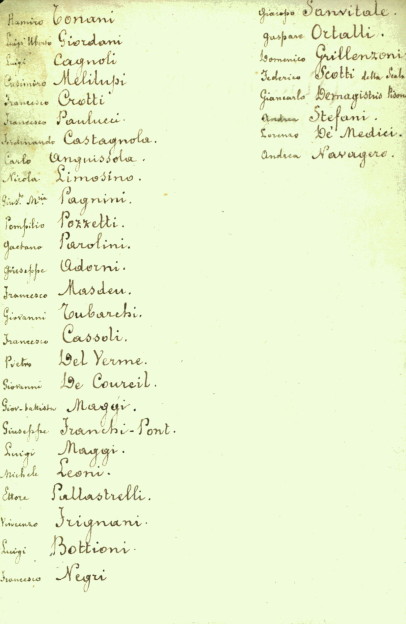 Ramiro Tonani
Luigi Uberto Giordani
Luigi Cagnoli
Casimiro Melilupi
Francesco Crotti
Francesco Paulucci.
Ferdinando Castagnola.
Carlo Anguissola.
Nicola Limosino.
Gius. Mia Pagnini.
Pompilio Pozzetti.
Gaetano Parolini.
Giuseppe Adorni.
Francesco Masdeu.
Giovanni Tubarchi.
Francesco Cassoli.
Pietro Del Verme.
Giovanni De Coureil.
Giov-battista Maggi.
Giuseppe Franchi-Pont.
Luigi Maggi.
Michele Leoni.
Ettore Pallastrelli.
Vincenzo Frignani.
Luigi Bottioni.
Francesco Negri
Giacopo Sanvitale.
Gaspare Ortalli.
Domenico Grillenzoni
Federico Scotti della Scala
Giancarlo Demagistris
Andrea Stefani.
Lorenzo De' Medici.
Andrea Navagero.